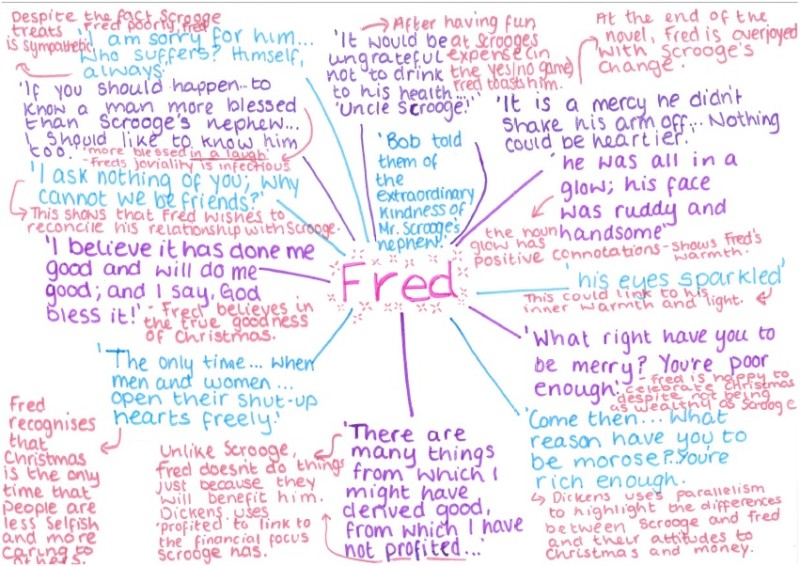 Despite the fact Scrooge
treats Fred poorly, fred
is sympathetic
'I am sorry for him...
Who suffers? Himself,
always.'
'It would be
ungrateful
not to drink
to his health...
'Uncle Scrooge!''
After having fun
at Scrooges
expense in
the yes/no game
Fred toasts him.
At the end of the
novel, Fred is overjoyed
with Scrooge's
change.
'If you should happen... to
know a man more blessed
than Scrooge's nephew...
I should like to know him
too.'
"more blessed in a laugh"
- Freds joviality is infectious
'Bob told
them of
the
extraordinary
kindness of
Mr. Scrooge's
nephew.'
'It is a mercy he didn't
shake his arm off... Nothing
could be heartier.'
'I ask nothing of you; why
cannot we be friends?'
This shows that Fred wishes to
reconcile his relationship with Scrooge.
'he was all in a
glow; his face
was ruddy and
handsome'
the noun
glow has
positive connotations - shows Fred's
warmth.
'I believe it has done me
good and will do me
good; and I say, God
bless it!'
- Fred believes in
the true goodness
of Christmas.
Fred
'his eyes sparkled'
This could link to his
inner warmth and light.
'What right have you to
be merry? You're poor
enough.'
- fred is happy to
celebrate Christmas
despite not being
as wealthy as Scrooge
'The only time... when
men and women...
open their shut-up
hearts freely.'
Fred
recognises
that
Christmas
is the only
time that
people are
less selfish
and more
caring to
others.
Unlike Scrooge,
fred doesn't do things
just because they
will benefit him.
Dickens uses
'profited' to link to
the financial focus
Scrooge has.
'There are
many things
from which I
might have
derived good,
from which I have
not profited...'
'Come then... What
reason have you to
be morose?...You're
rich enough.
Dickens uses parallelism
to highlight the differences
between Scrooge and fred
and their attitudes to
Christmas and money.